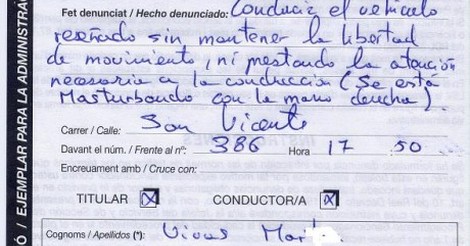 Fet denunciat / Hecho denunciado: Conducir el vehículo
reseñado sin mantener la libertad
de movimiento, ni prestando la atención
necesaria a la conducción (Se está
Masturbando con la mano derecha).
Carrer / Calle: San Vicente
Davant el núm. / Frente al nº: 386 Hora 17 50
Encreuament amb / Cruce con:
TITULAR X CONDUCTOR/A X
Cognoms / Apellidos (*): Vivas
Ó / EJEMPLAR PARA LA ADMINISTRAC